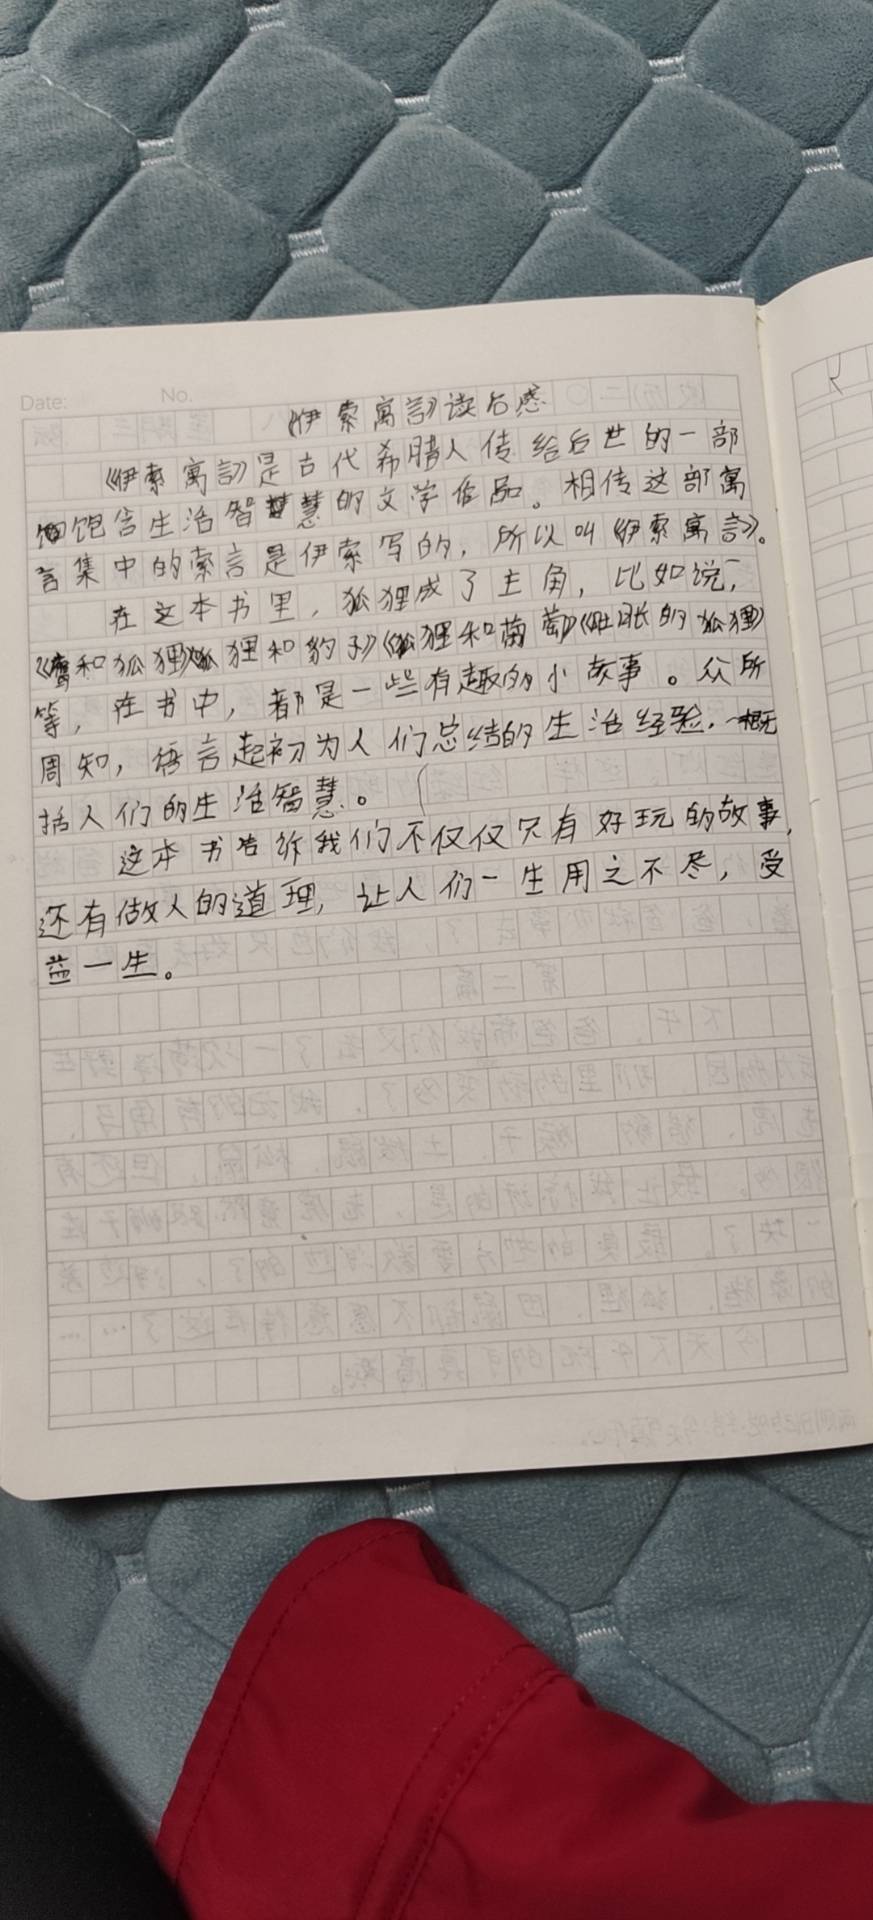 Date:
No.
《伊索寓言》读后感
《伊索寓言》是古代希腊人传给后世的一部
饱含生活智慧的文学作品。相传这部寓
言集中的索言是伊索写的，所以叫《伊索寓言》。
在这本书里，狐狸成了主角，比如说，
《鹰和狐狸》《狐狸和豹子》《狐狸和葡萄》《肚胀的狐狸》
等，在书中，都是一些有趣的小故事。众所
周知，语言起初为人们总结的生活经验，概
括人们的生活智慧。
这本书告诉我们不仅仅只有好玩的故事，
还有做人的道理，让人们一生用之不尽，受
益一生。